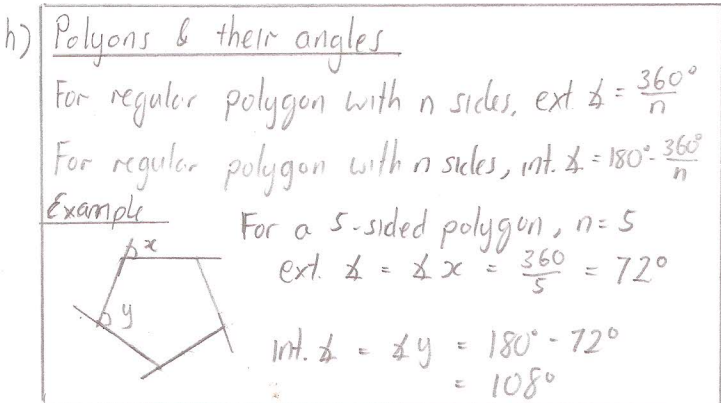 h) Polyons & their angles
For regular polygon with n sides, ext. ∡ = 360°/n
For regular polygon with n sides, int. ∡ = 180° - 360°/n
Example
For a 5-sided polygon, n = 5
x
ext. ∡ = ∡ x = 360/5 = 72°
y
int. ∡ = ∡ y = 180° - 72°
= 108°